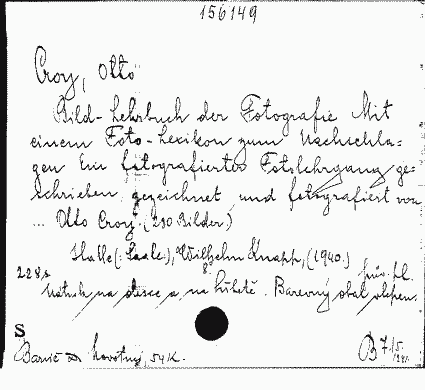 156149
Croy, Otto
Bild-Lehrbuch der Fotografie Mit
einem Foto-Lexikon zum Nachschla-
gen Ein fotografierter Fotolehrgang ge-
schrieben, gezeichnet und fotografiert von
... Otto Croy. (290 Bilder.)
Halle (: Saale:), Wilhelm Knapp, (1940.)
228 s 8° pův. pl.
Nátisk na desce a na hřbetě. Barevný obal olepen.
S
Barvič & Novotný, 54 K.
B 7/5